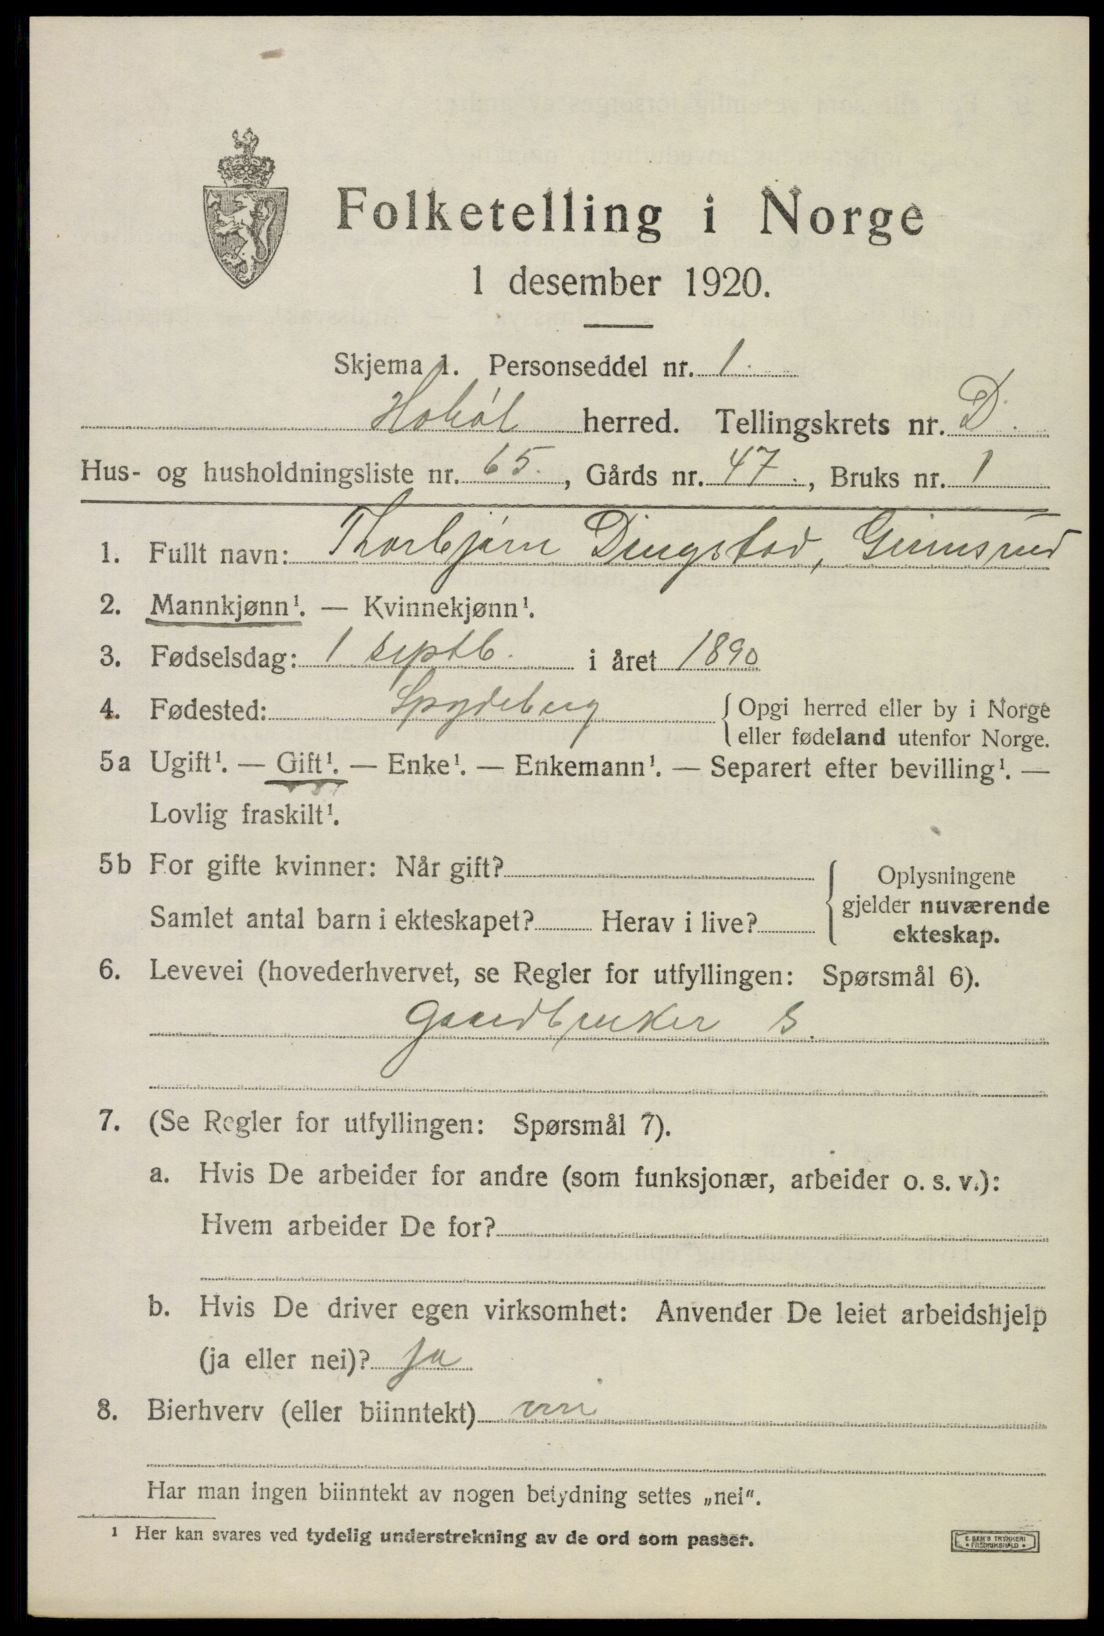 Folketelling i Norge
1 desember 1920.
Skjema 1. Personseddel nr. 1.
Hobøl herred. Tellingskrets nr. D.
Hus- og husholdningsliste nr. 65., Gårds nr. 47., Bruks nr. 1
1. Fullt navn: Thorbjørn Dingstad, Grimsrud
2. Mannkjønn¹. — Kvinnekjønn¹.
3. Fødselsdag: 1 septb. i året 1890
4. Fødested: Spydeberg { Opgi herred eller by i Norge
eller fødeland utenfor Norge.
5a Ugift¹. — Gift¹. — Enke¹. — Enkemann¹. — Separert efter bevilling¹. —
Lovlig fraskilt¹.
5b For gifte kvinner: Når gift?
Samlet antal barn i ekteskapet? Herav i live?
{ Oplysningene
gjelder nuværende
ekteskap.
6. Levevei (hovederhvervet, se Regler for utfyllingen: Spørsmål 6).
Gaardbruker S.
7. (Se Regler for utfyllingen: Spørsmål 7).
a. Hvis De arbeider for andre (som funksjonær, arbeider o. s. v.):
Hvem arbeider De for?
b. Hvis De driver egen virksomhet: Anvender De leiet arbeidshjelp
(ja eller nei)? ja
8. Bierhverv (eller biinntekt)
Har man ingen biinntekt av nogen betydning settes „nei“.
¹ Her kan svares ved tydelig understrekning av de ord som passer.
E. SEM'S TRYKKERI
• FREDRIKSHALD •